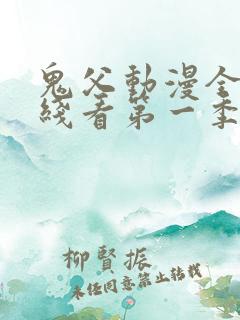 鬼父動漫全
綫看第一季
柳賢振
未经同意禁止转载